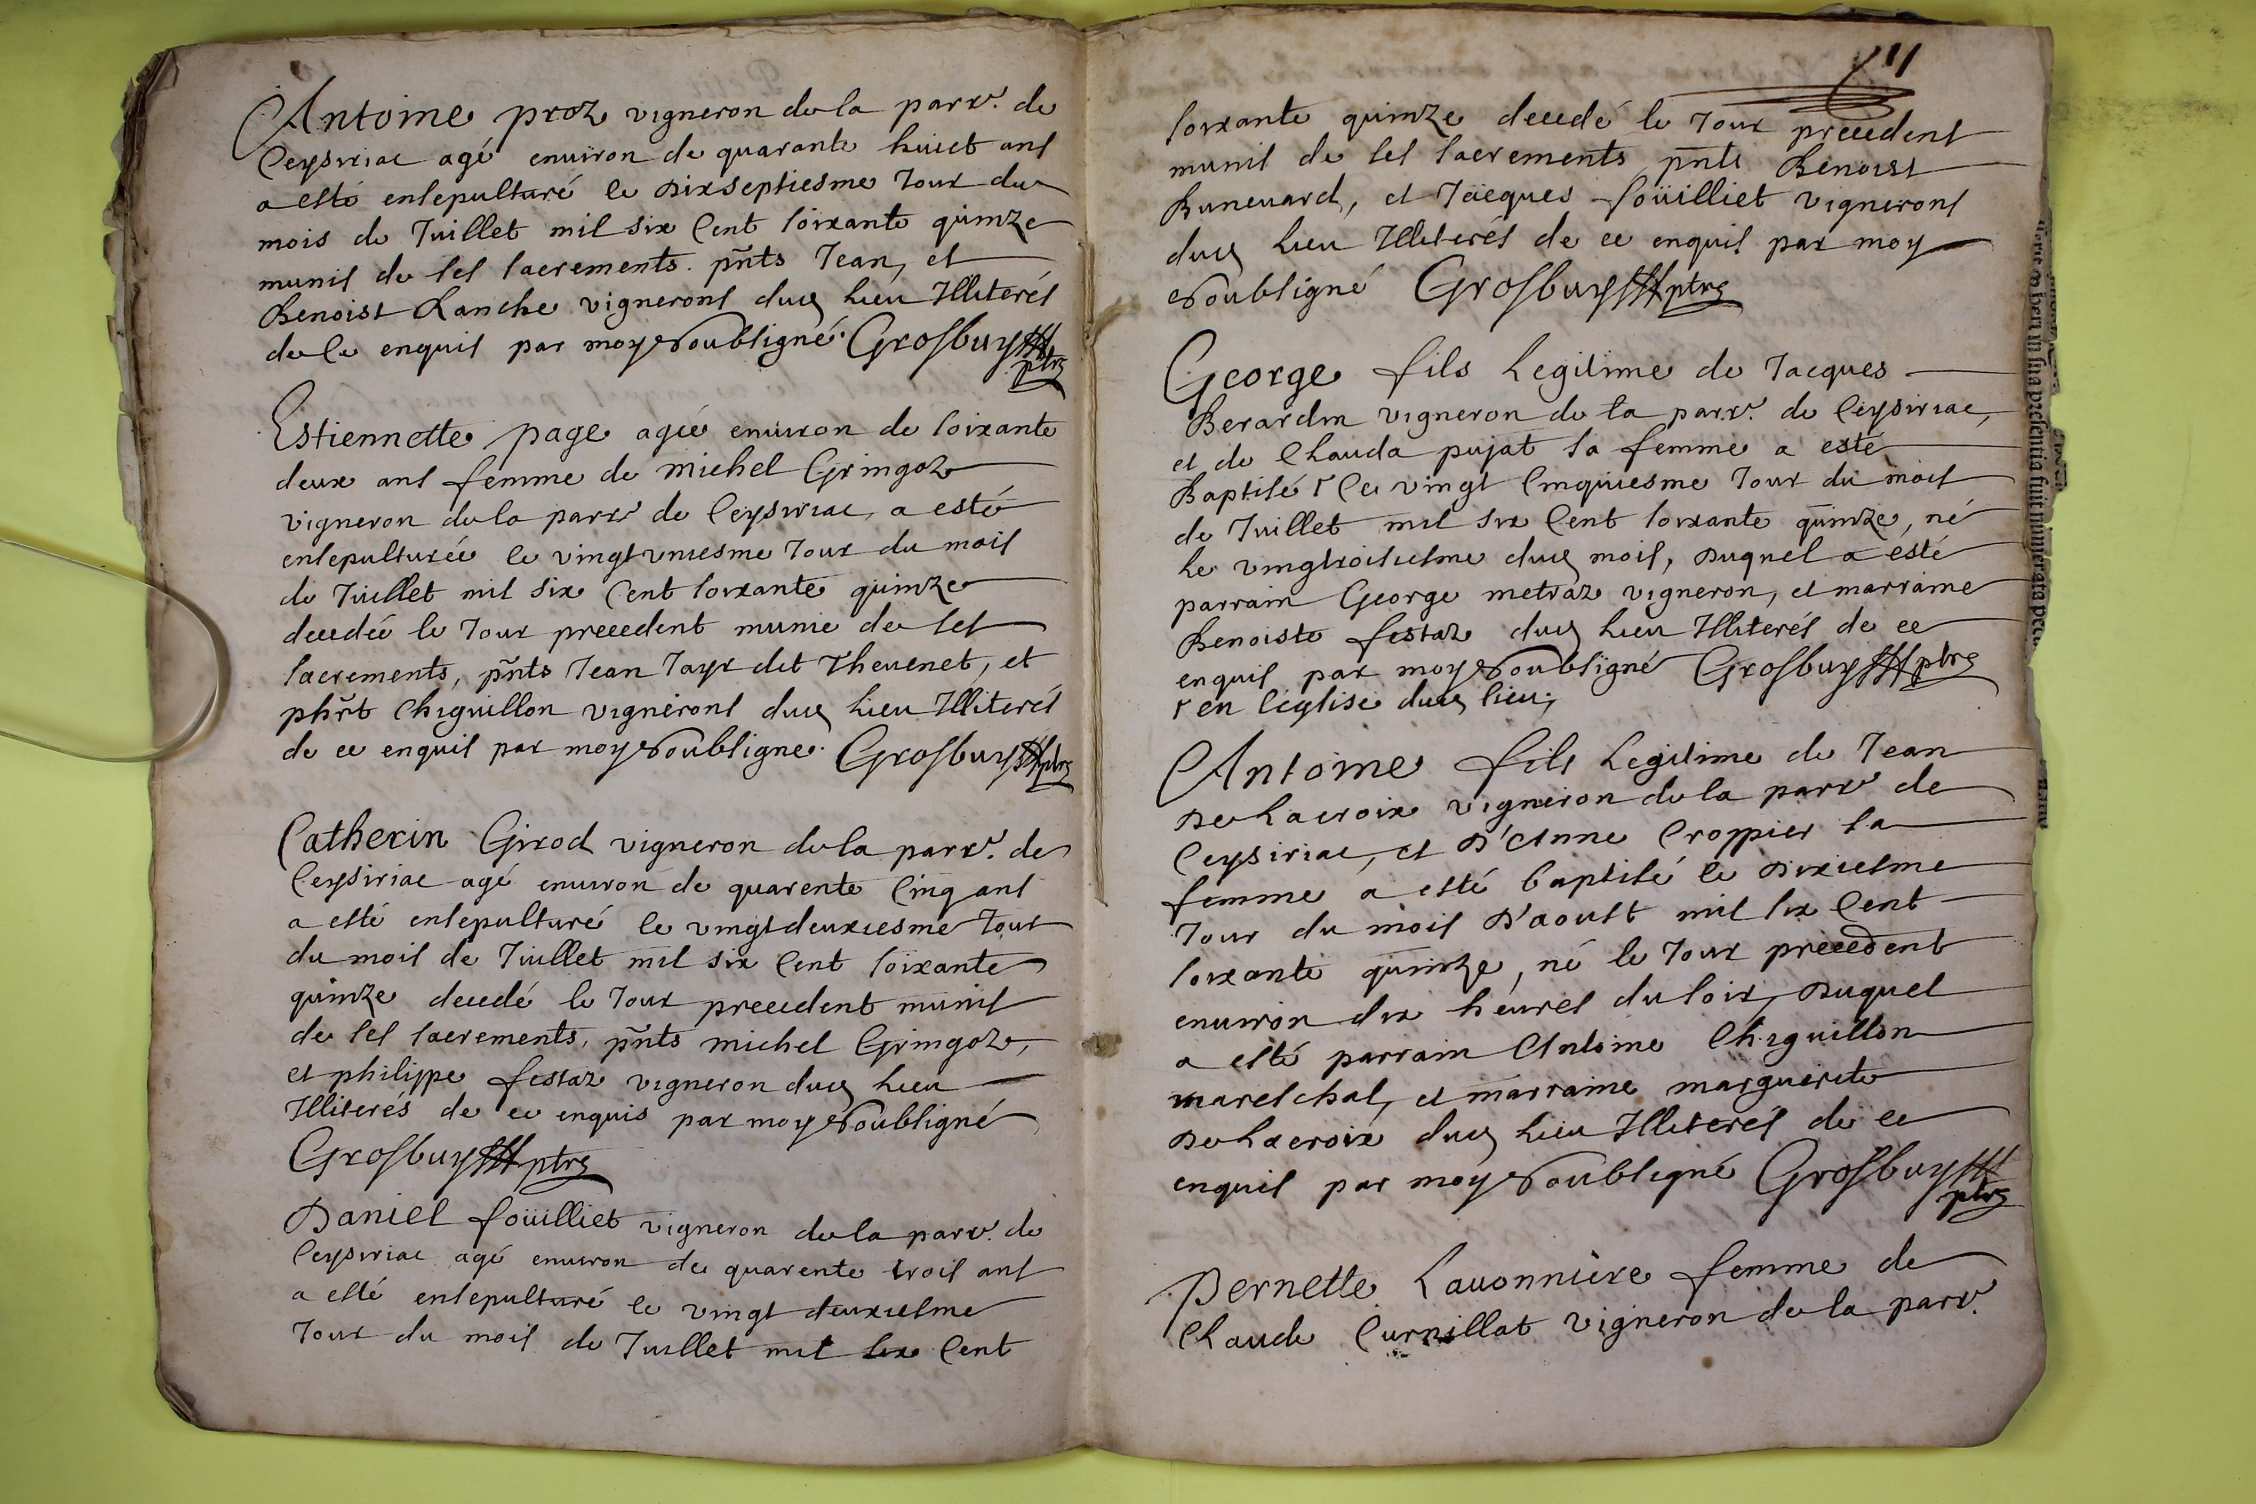 Antoine proz vigneron de la parr. de
Ceysiriac agé environ de quarante huict ans
a esté ensepulturé le dixseptiesme Jour du
mois de Juillet mil six Cent soixante quinze
munis de ses sacrements. pnts Jean, et
Benoist Lanche vignerons dud lieu Illiterés
de Ce enquis par moy soubsigné. Grosbuy ptre
Estiennette page agée environ de soixante
deux ans femme de michel Gringoz
vigneron de la parr de Ceysiriac, a esté
ensepulturée le vingtuniesme Jour du mois
de Juillet mil six Cent soixante quinze
decedée le Jour precedent munie de ses
sacrements, pnts Jean Jayr dit Thevenet, et
phrt Chiguillon vignerons dud lieu Illiterés
de ce enquis par moy soubsigne. Grosbuy ptre
Catherin Girod vigneron de la parr. de
Ceysiriac agé environ de quarente Cinq ans
a esté ensepulturé le vingtdeuxiesme Jour
du mois de Juillet mil six Cent soixante
quinze decedé le Jour precedent munis
de ses sacrements, pnts michel Gringoz,
et philippe festaz vigneron dud lieu
Illiterés de ce enquis par moy soubsigné
Grosbuy ptre
Daniel foüilliet vigneron de la parr. de
Ceysiriac agé environ de quarente trois ans
a esté ensepulturé le vingt deuxiesme
Jour du mois de Juillet mil six Cent
11
soixante quinze decedé le Jour precedent
munis de ses sacrements pnts Benoist
Bunevard, et Jacques foüilliet vignerons
dud lieu Illiterés de ce enquis par moy
soubsigné Grosbuy ptre
George fils Legitime de Jacques
Berardin vigneron de la parr. de Ceysiriac,
et de Clauda pujat sa femme a esté
Baptisé r Le vingt Cinquiesme Jour du mois
de Juillet mil six Cent soixante quinze, né
Le vingtroisiesme dud mois, duquel a esté
parrain George metraz vigneron, et marraine
Benoiste festaz dud lieu Illiterés de ce
enquis par moy soubsigné Grosbuy ptre
r en l'église dud lieu;
Antoine fils Legitime de Jean
De Lacroix vigneron de la parr de
Ceysiriac, et D'Anne Croppier sa
femme a esté baptisé le dixiesme
Jour du mois D'aoust mil six Cent
soixante quinze, né le Jour precedent
environ dix heures du soir, duquel
a esté parrain Antoine Chiguillon
mareschal, et marraine marguerite
De Lacroix dud lieu Illiterés de ce
enquis par moy soubsigné Grosbuy
ptre
Pernette Lavonniere femme de
Claude Curnillat vigneron de la parr.